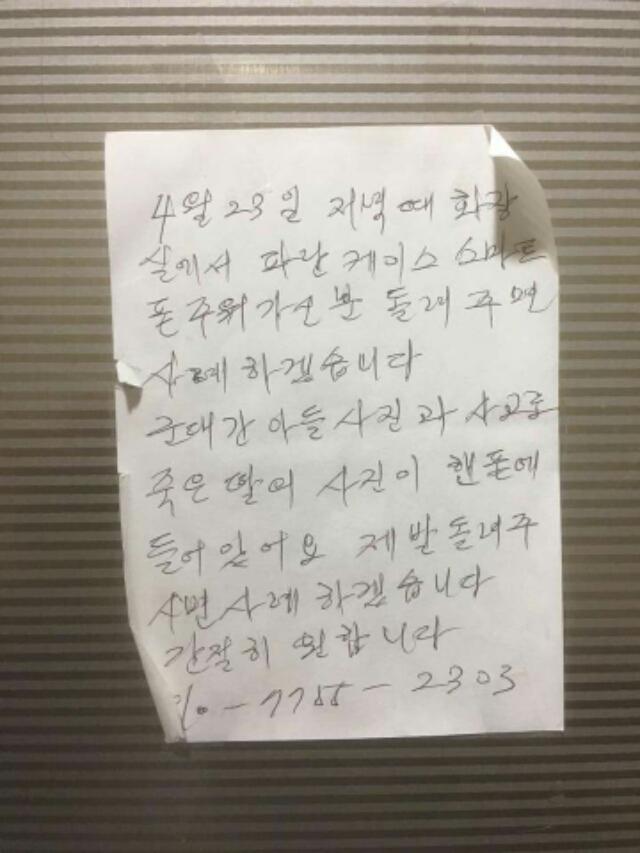 4월 23일 저녁때 화장
실에서 파란케이스 스마트
폰 주워가신 분 돌려주면
사례하겠습니다
군대간 아들사진과 사고로
죽은 딸의 사진이 핸폰에
들어있어요 제발돌려주
시면 사례하겠습니다
간절히 원합니다
010-7788-2303